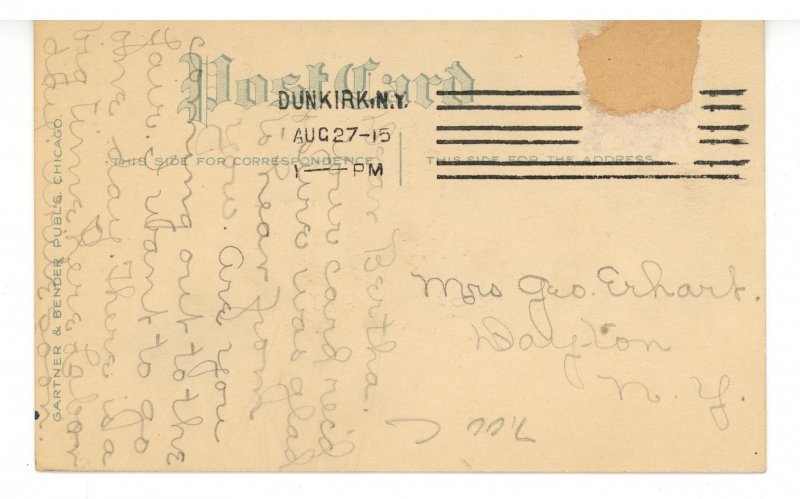 Post Card
DUNKIRK, N.Y.
AUG 27-15
1 — PM
THIS SIDE FOR CORRESPONDENCE
THIS SIDE FOR THE ADDRESS
GARTNER & BENDER PUBL'S, CHICAGO.
Dear Bertha.
Your card rec'd
sure was glad
to hear from
you. Are you
coming out to the
Fair. I want to go
one day. There is a
big time here Labor
day.
soon.
Mrs Geo. Erhart.
Dayton
N. Y.